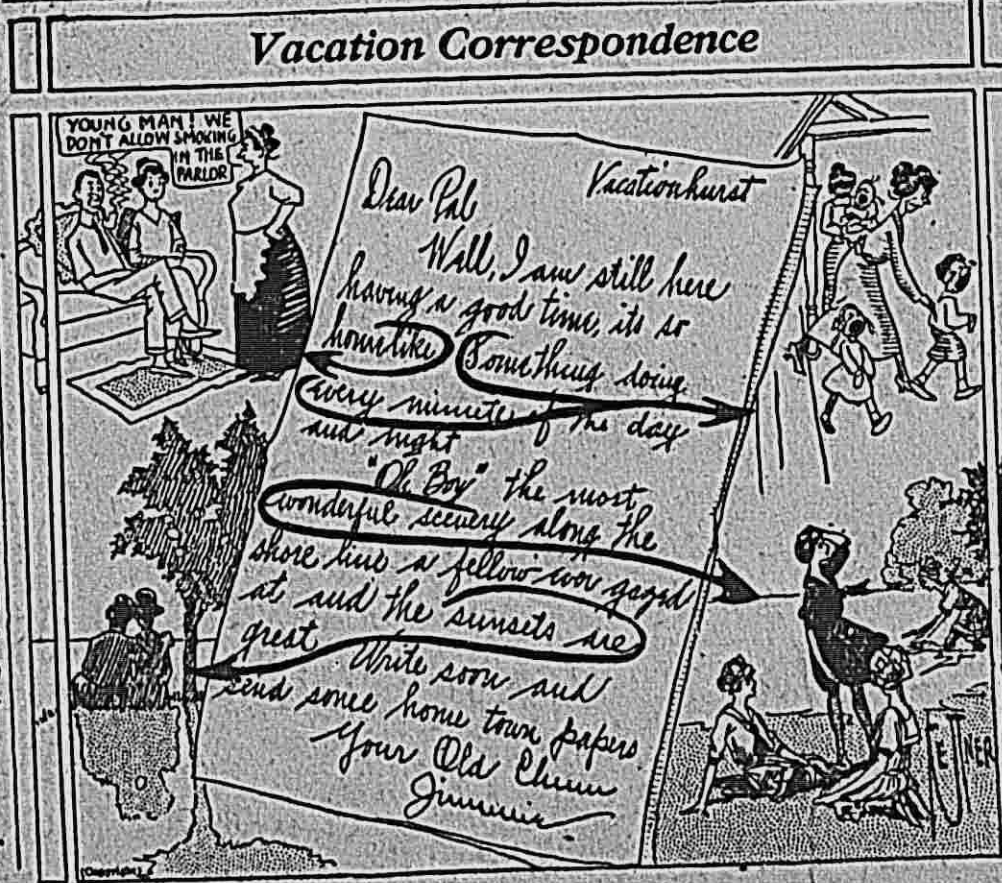 Vacation Correspondence
YOUNG MAN! WE
DON'T ALLOW SMOKING
IN THE
PARLOR
Vacationhurst
Dear Pal
Well, I am still here
having a good time, its so
homelike Something doing
every minute of the day
and night
"Oh Boy" the most
wonderful scenery along the
shore line a fellow ever gazed
at and the sunsets are
great Write soon and
send some home town papers
Your Old Chum
Jimmie
(Copyright)